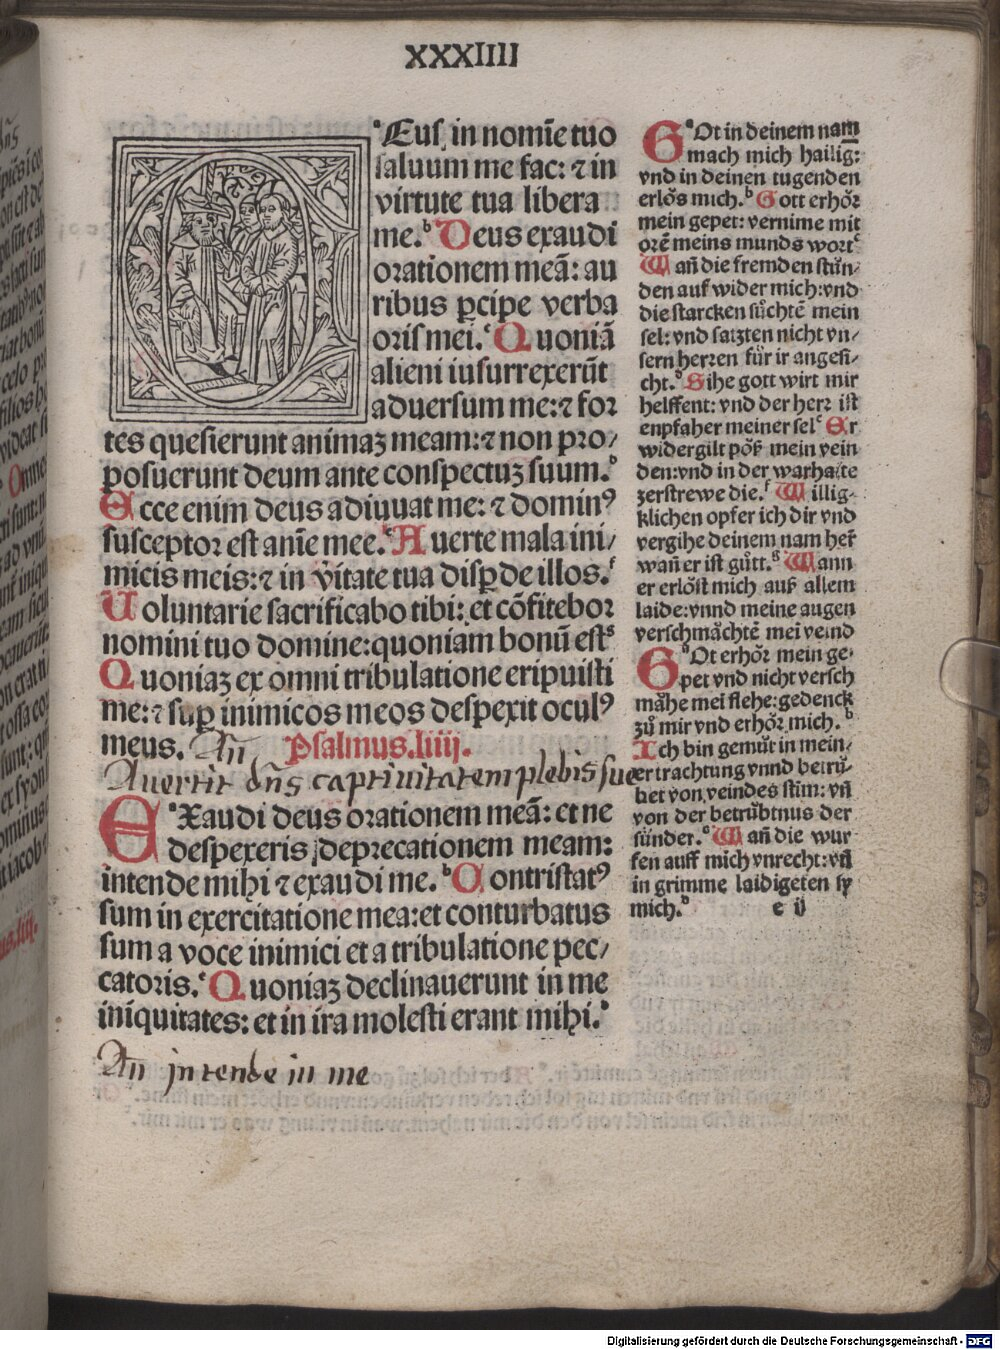 XXXIIII
ᵃEus in nomīe tuo
saluum me fac: ⁊ in
virtute tua libera
me.ᵇ Deus exaudi
orationem meā: au
ribus ꝑcipe verba
oris mei.ᶜ Quoniā
alieni insurrexerūt
aduersum me:⁊ for
tes quesierunt animaꝫ meam:⁊ non pro/
posuerunt deum ante conspectuꝫ suum.ᵈ
Ecce enim deus adiuuat me: ⁊ dominꝰ
susceptor est anīe mee.ᵉ Auerte mala ini/
micis meis:⁊ in v̄itate tua disꝑde illos.ᶠ
Uoluntarie sacrificabo tibi: et cōfitebor
nomini tuo domine:quoniam bonū estᵍ
Quoniaꝫ ex omni tribulatione eripuisti
me:⁊ suꝑ inimicos meos despexit oculꝰ
meus. An̄ Psalmus.liiij.
Auertit dn̄s captiuitatem plebis sue
EᵃXaudi deus orationem meā: et ne
despexeris deprecationem meam:
intende mihi ⁊ exaudi me.ᵇ Contristatꝰ
sum in exercitatione mea:et conturbatus
sum a voce inimici et a tribulatione pec/
catoris.ᶜ Quoniaꝫ declinauerunt in me
iniquitates: et in ira molesti erant mihi.ᵈ
An̄ intende in me
GᵃOt in deinem nam
mach mich hailig:
vnd in deinen tugenden
erlo̊s mich.ᵇ Gott erho̊r
mein gepet: vernime mit
orē meins munds wortᶜ
Wañ die fremden stůn/
den auf wider mich:vnd
die starcken sůchtē mein
sel: vnd satzten nicht vn/
sern herren für ir angesi/
cht.ᵈ Sihe gott wirt mir
helffent: vnd der herr ist
enpfaher meiner selᵉ Er
widergilt po̊ß mein vein
den:vnd in der warhaite
zerstrewe die.ᶠ Willig/
klichen opfer ich dir vnd
vergihe deinem nam her̄
wañ er ist gůtt.ᵍ Wann
er erlo̊st mich auß allem
laide:vnnd meine augen
verschma̋chtē mei veind
GᵃOt erho̊r mein ge/
pet vnd nicht versch
ma̋he mei flehe:gedenck
zů mir vnd erho̊r mich.ᵇ
Ich bin gemůt in mein/
er trachtung vnnd betrü/
bet von veindes stim: vn̄
von der betrübtnus der
sünder.ᶜ Wañ die wur/
fen auff mich vnrecht:vn̄
in grimme laidigeten sy
mich.ᵈ e ij
Digitalisierung gefördert durch die Deutsche Forschungsgemeinschaft - DFG